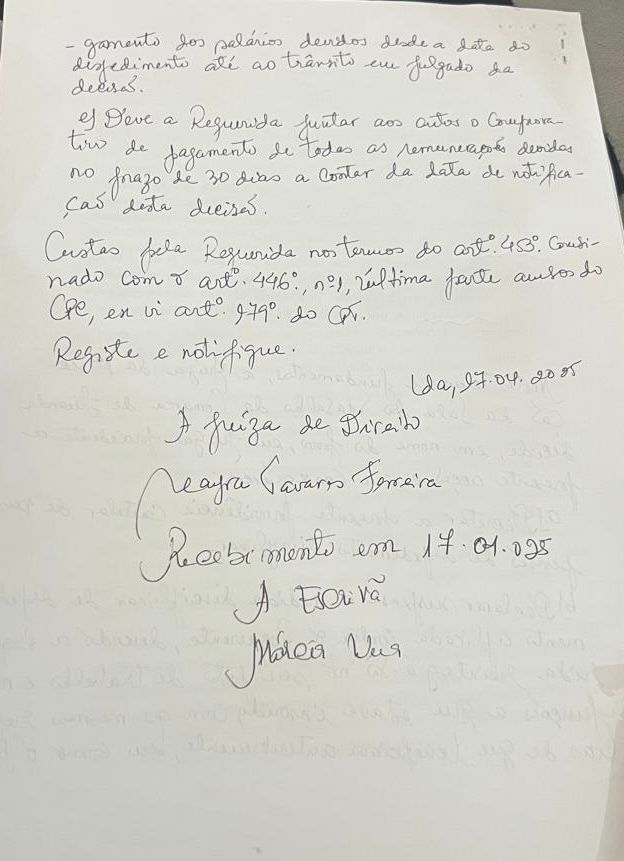 - gamento dos salários devidos desde a data do
despedimento até ao trânsito em julgado da
decisão.
e) Deve a Requerida juntar aos autos o Comprova-
tivo de pagamento de todas as remunerações devidas
no prazo de 30 dias a contar da data de notifica-
ção desta decisão.
Custas pela Requerida nos termos do artº. 453º. Combi-
nado com o artº. 446º., nº1, última parte ambos do
CPC, ex vi artº. 979º. do CPT.
Registe e notifique.
Lda, 17.04.2025
A Juíza de Direito
Tavares Ferreira
Recebimento em 17.04.025
A Escrivã
Márcia